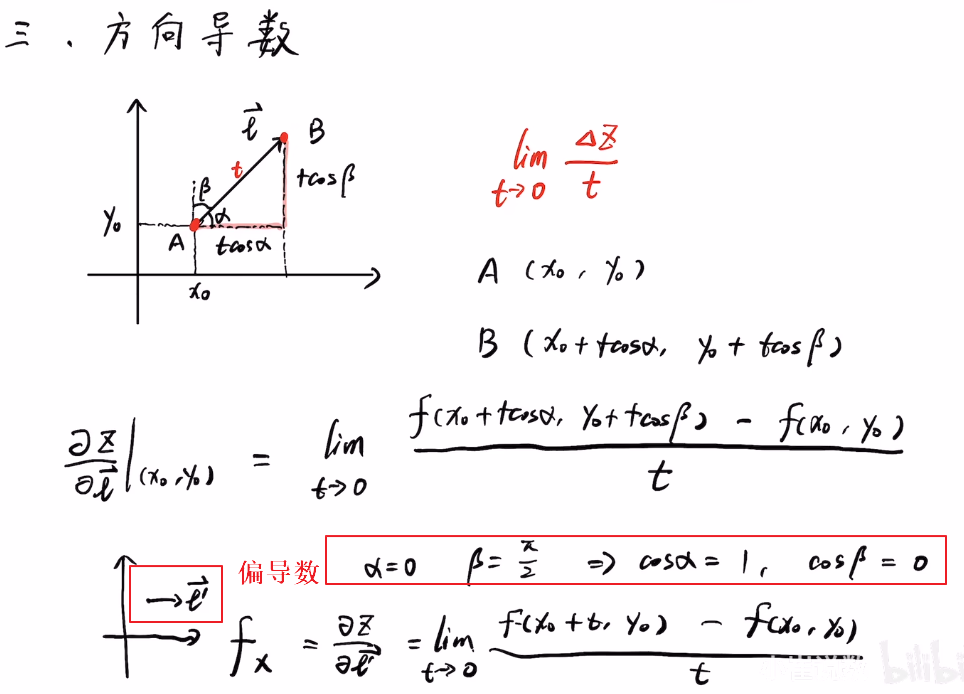 三、方向导数
l⃗ B
t
β
tcosβ
y₀
α
A
tcosα
x₀
lim t→0 ΔZ/t
A (x₀, y₀)
B (x₀+tcosα, y₀+tcosβ)
∂Z/∂l⃗ |(x₀,y₀) = lim t→0 [f(x₀+tcosα, y₀+tcosβ) - f(x₀, y₀)]/t
偏导数 α=0 β=π/2 => cosα=1, cosβ=0
→l⃗'
fx = ∂Z/∂l⃗' = lim t→0 [f(x₀+t, y₀) - f(x₀, y₀)]/t
bilibi